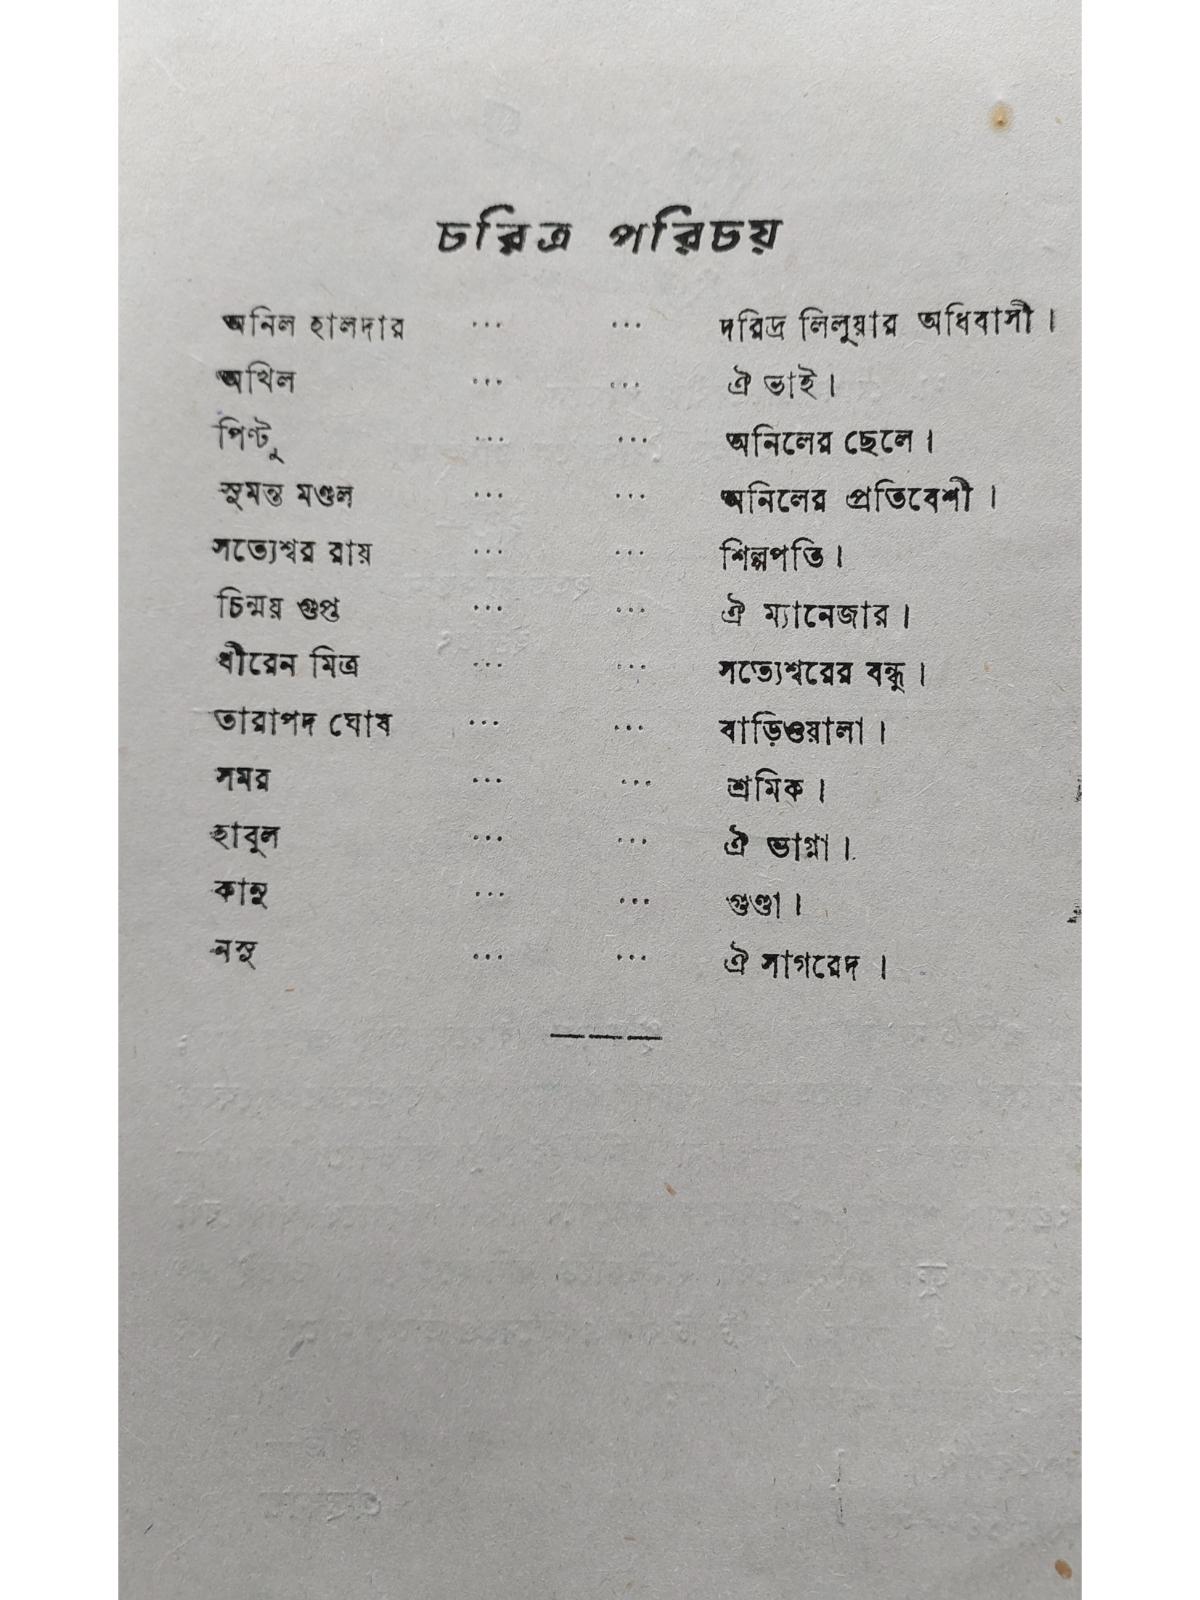 চরিত্র পরিচয়
অনিল হালদার ... ... দরিদ্র লিলুয়ার অধিবাসী।
অখিল ... ... ঐ ভাই।
পিণ্টু ... ... অনিলের ছেলে।
সুমন্ত মণ্ডল ... ... অনিলের প্রতিবেশী।
সত্যেশ্বর রায় ... ... শিল্পপতি।
চিন্ময় গুপ্ত ... ... ঐ ম্যানেজার।
ধীরেন মিত্র ... ... সত্যেশ্বরের বন্ধু।
তারাপদ ঘোষ ... ... বাড়িওয়ালা।
সমর ... ... শ্রমিক।
হাবুল ... ... ঐ ভাগ্না।
কানু ... ... গুণ্ডা।
নসু ... ... ঐ সাগরেদ।